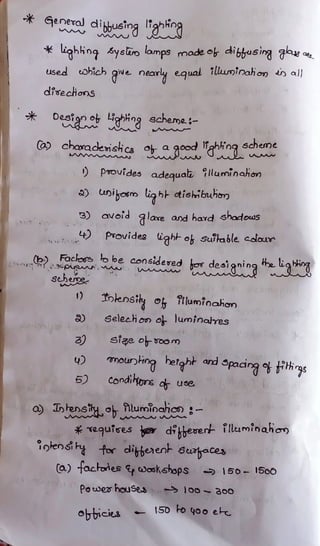 * General diffusing lighting
* lighting system lamps made of diffusing glass are
used which give nearly equal illumination in all
directions
* Design of Lighting scheme :-
(a) characteristics of a good lighting scheme
1) provides adequate illumination
2) uniform light distribution
3) avoid glare and hard shadows
4) provides light of suitable colour
(b) Factors to be considered for designing the lighting
scheme
1) Intensity of illumination
2) Selection of luminaires
3) size of room
4) mounting height and spacing of fittings
5) conditions of use
a) Intensity of illumination :-
* requires different illumination
intensity for different surfaces
(a) factories & workshops → 150 - 1500
Power houses → 100 - 300
officies - 150 to 400 etc